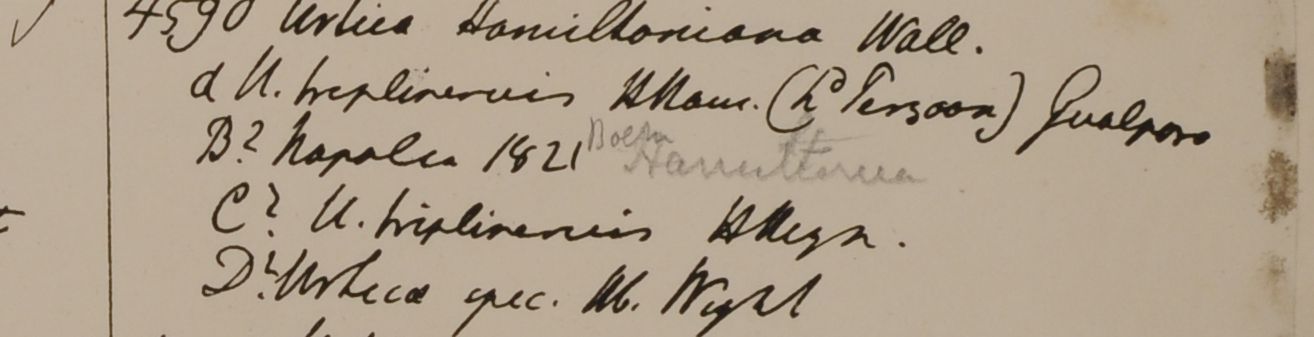 4590 Urtica Hamiltoniana Wall.
a U. triplinervis HHam. (h? Persoon) Gualpara
B? Napalia 1821 Boehm Hamiltonia
C? U. triplinervis HHeyn.
D? Urtica spec. Hb. Wight